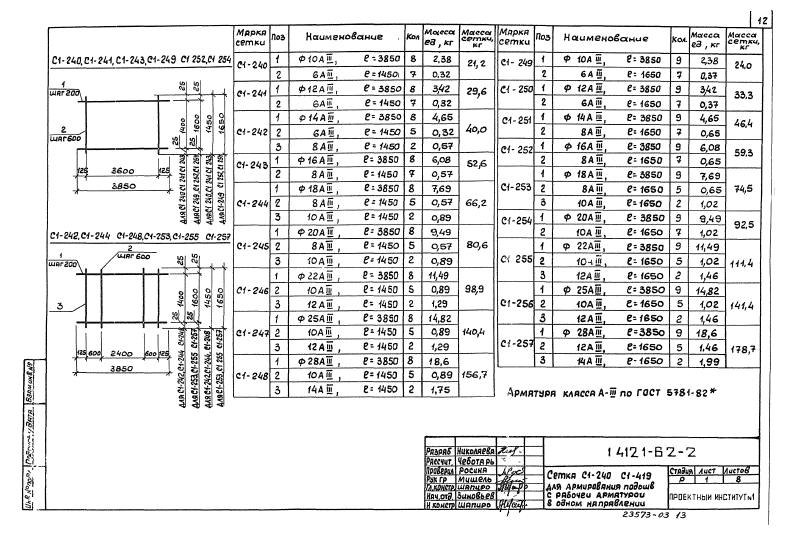 12
С1-240, С1-241, С1-243, С1-249 С1 252, С1 254
1
ШАГ 200
2
ШАГ 600
25 25
1400 1600 1450 1650
25 25
125 3600 125
3850
ДЛЯ С1-240, С1 241 С1 243
ДЛЯ С1-249, С1 252, С1 254
С1-242, С1-244 С1-246, С1-253, С1-255 С1-257
2
ШАГ 600
1
ШАГ 200
3
25 25
1400 1600 1450 1650
25 25
125 600 2400 600 125
3850
Марка сетки Поз Наименование Кол Масса ед, кг Масса сетки, кг
С1-240 1 Ф 10А III, ℓ=3850 8 2,38 21,2
2 6А III, ℓ=1450 7 0,32
С1-241 1 Ф 12А III, ℓ=3850 8 3,42 29,6
2 6А III, ℓ=1450 7 0,32
С1-242 1 Ф 14А III, ℓ=3850 8 4,65 40,0
2 6А III, ℓ=1450 5 0,32
3 8А III, ℓ=1450 2 0,57
С1-243 1 Ф 16А III, ℓ=3850 8 6,08 52,6
2 8А III, ℓ=1450 7 0,57
С1-244 1 Ф 18А III, ℓ=3850 8 7,69 66,2
2 8А III, ℓ=1450 5 0,57
3 10А III, ℓ=1450 2 0,89
С1-245 1 Ф 20А III, ℓ=3850 8 9,49 80,6
2 8А III, ℓ=1450 5 0,57
3 10А III, ℓ=1450 2 0,89
С1-246 1 Ф 22А III, ℓ=3850 8 11,49 98,9
2 10А III, ℓ=1450 5 0,89
3 12А III, ℓ=1450 2 1,29
С1-247 1 Ф 25А III, ℓ=3850 8 14,82 140,4
2 10А III, ℓ=1450 5 0,89
3 12А III, ℓ=1450 2 1,29
С1-248 1 Ф 28А III, ℓ=3850 8 18,6 156,7
2 10А III, ℓ=1450 5 0,89
3 14А III, ℓ=1450 2 1,75
Марка сетки Поз Наименование Кол. Масса ед, кг Масса сетки, кг
С1-249 1 Ф 10А III, ℓ=3850 9 2,38 24,0
2 6А III, ℓ=1650 7 0,37
С1-250 1 Ф 12А III, ℓ=3850 9 3,42 33,3
2 6А III, ℓ=1650 7 0,37
С1-251 1 Ф 14А III, ℓ=3850 9 4,65 46,4
2 8А III, ℓ=1650 7 0,65
С1-252 1 Ф 16А III, ℓ=3850 9 6,08 59,3
2 8А III, ℓ=1650 7 0,65
С1-253 1 Ф 18А III, ℓ=3850 9 7,69 74,5
2 8А III, ℓ=1650 5 0,65
3 10А III, ℓ=1650 2 1,02
С1-254 1 Ф 20А III, ℓ=3850 9 9,49 92,5
2 10А III, ℓ=1650 7 1,02
С1 255 1 Ф 22А III, ℓ=3850 9 11,49 111,4
2 10А III, ℓ=1650 5 1,02
3 12А III, ℓ=1650 2 1,46
С1-256 1 Ф 25А III, ℓ=3850 9 14,82 141,4
2 10А III, ℓ=1650 5 1,02
3 12А III, ℓ=1650 2 1,46
С1-257 1 Ф 28А III, ℓ=3850 9 18,6 178,7
2 12А III, ℓ=1650 5 1,46
3 14А III, ℓ=1650 2 1,99
Арматура класса А-III по ГОСТ 5781-82*
Разраб Николаева
Рассчит. Чеботарь
Проверил Росина
Рук гр Мишель
Гл.констр Шапиро
Нач.отд. Зиновьев
Н констр Шапиро
1 4121-Б2-2
Сетка С1-240 С1-419
для армирования подошв
с рабочей арматурой
в одном направлении
Стадия Лист Листов
Р 1 8
ПРОЕКТНЫЙ ИНСТИТУТ №1
23573-03 13